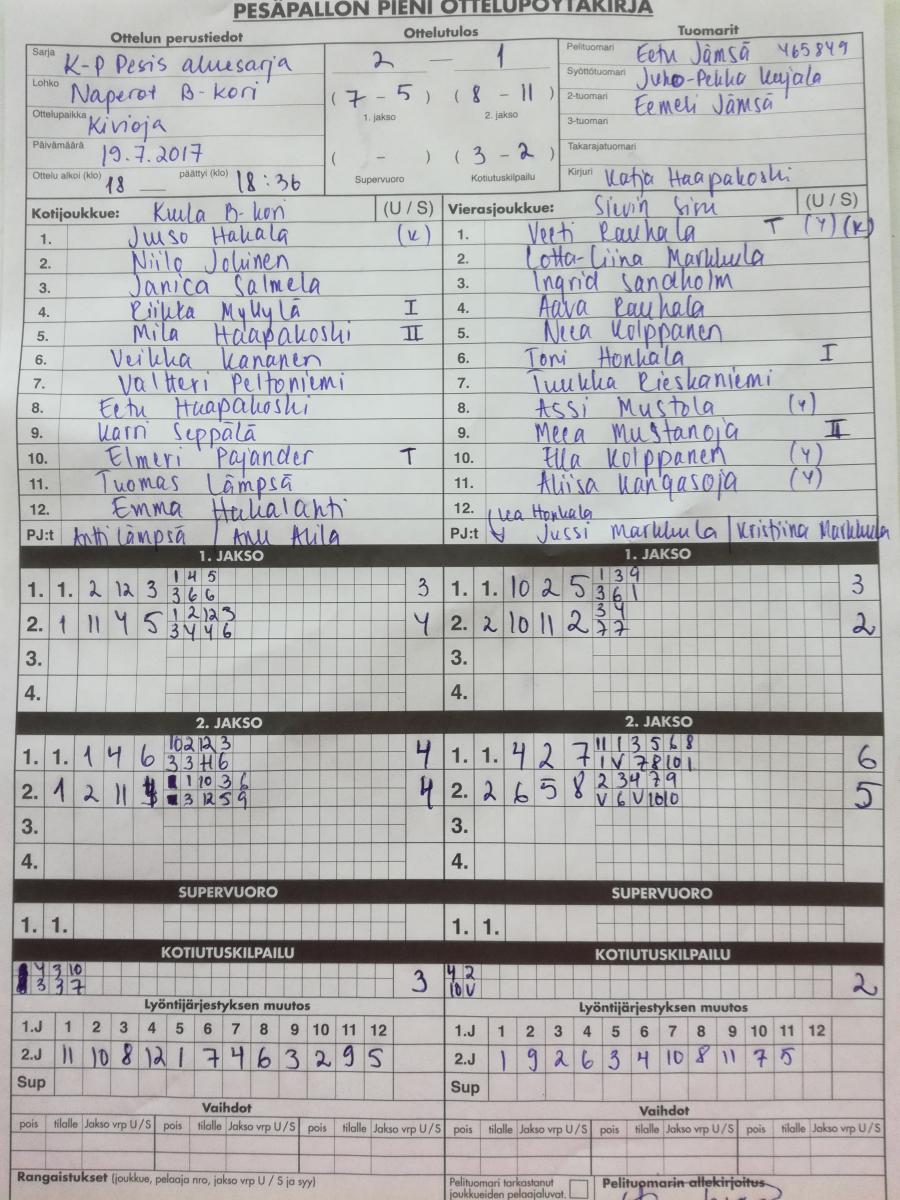 PESÄPALLON PIENI OTTELUPÖYTÄKIRJA
Ottelun perustiedot
Ottelutulos
Tuomarit
Sarja K-P Pesis aluesarja
Lohko Naperot B-kori
Ottelupaikka Kivioja
Päivämäärä 19.7.2017
Ottelu alkoi (klo) 18 — päättyi (klo) 18:36
2 — 1
( 7 - 5 ) ( 8 - 11 )
1. jakso 2. jakso
( - ) ( 3 - 2 )
Supervuoro Kotiutuskilpailu
Pelituomari Eetu Jämsä 465849
Syöttötuomari Juho-Pekka Karjala
2-tuomari Eemeli Jämsä
3-tuomari
Takarajatuomari
Kirjuri Katja Haapakoski
Kotijoukkue: Kuula B-kori (U / S)
1. Juuso Hakala (K)
2. Niilo Jokinen
3. Janica Salmela
4. Riikka Myllylä I
5. Mila Haapakoski II
6. Veikka Kananen
7. Valtteri Peltoniemi
8. Eetu Haapakoski
9. Karri Seppälä
10. Elmeri Pajander T
11. Tuomas Lämpsä
12. Emma Hakalahti
PJ:t Antti Lämpsä / Anu Alila
Vierasjoukkue: Sievin Sisu (U / S)
1. Veeti Rauhala T (Y) (K)
2. Lotta-Liina Markkula
3. Ingrid Sandholm
4. Aava Rauhala
5. Neea Kolppanen
6. Toni Honkala I
7. Tuukka Rieskaniemi
8. Assi Mustola (Y)
9. Meea Mustanoja II
10. Ella Kolppanen (Y)
11. Aliisa Kangasoja (Y)
12. Lea Honkala
PJ:t Jussi Markkula / Kristiina Markkula
1. JAKSO
1. 1. 2 12 3 1 4 5 3
3 6 6
2. 1 11 4 5 1 2 12 3 4
3 4 4 6
3.
4.
1. JAKSO
1. 1. 10 2 5 1 3 9 3
3 6 1
2. 2 10 11 2 3 4 2
7 7
3.
4.
2. JAKSO
1. 1. 1 4 6 10 2 12 3 4
3 3 11 6
2. 1 2 11 1 10 3 6 4
3 12 5 9
3.
4.
2. JAKSO
1. 1. 4 2 7 11 1 3 5 6 8 6
1 V 7 8 10 1
2. 2 6 5 8 2 3 4 7 9 5
V 6 V 10 10
3.
4.
SUPERVUORO
1. 1.
SUPERVUORO
1. 1.
KOTIUTUSKILPAILU
4 3 10 3
3 3 7
KOTIUTUSKILPAILU
4 2 2
10 V
Lyöntijärjestyksen muutos
1.J 1 2 3 4 5 6 7 8 9 10 11 12
2.J 11 10 8 12 1 7 4 6 3 2 9 5
Sup
Lyöntijärjestyksen muutos
1.J 1 2 3 4 5 6 7 8 9 10 11 12
2.J 1 9 2 6 3 4 10 8 11 7 5
Sup
Vaihdot
pois tilalle Jakso vrp U/S pois tilalle Jakso vrp U/S pois tilalle Jakso vrp U/S
Vaihdot
pois tilalle Jakso vrp U/S pois tilalle Jakso vrp U/S pois tilalle Jakso vrp U/S
Rangaistukset (joukkue, pelaaja nro, jakso vrp U / S ja syy)
Pelituomari tarkastanut
joukkueiden pelaajaluvat.
Pelituomarin allekirjoitus